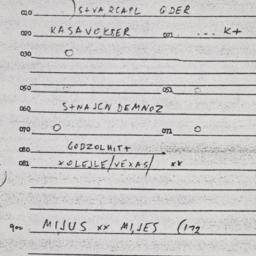 010 S+VARCAPL GDER
020 KASAVOKEER 021 ... K+
030 O
050 052 O
060 S+NAJCN DEMNOZ
070 O 072 O
080 GODZOLHIT+
081 XOLEJLE/VEXAS/ xx
900 MIJUS xx MIJES (172